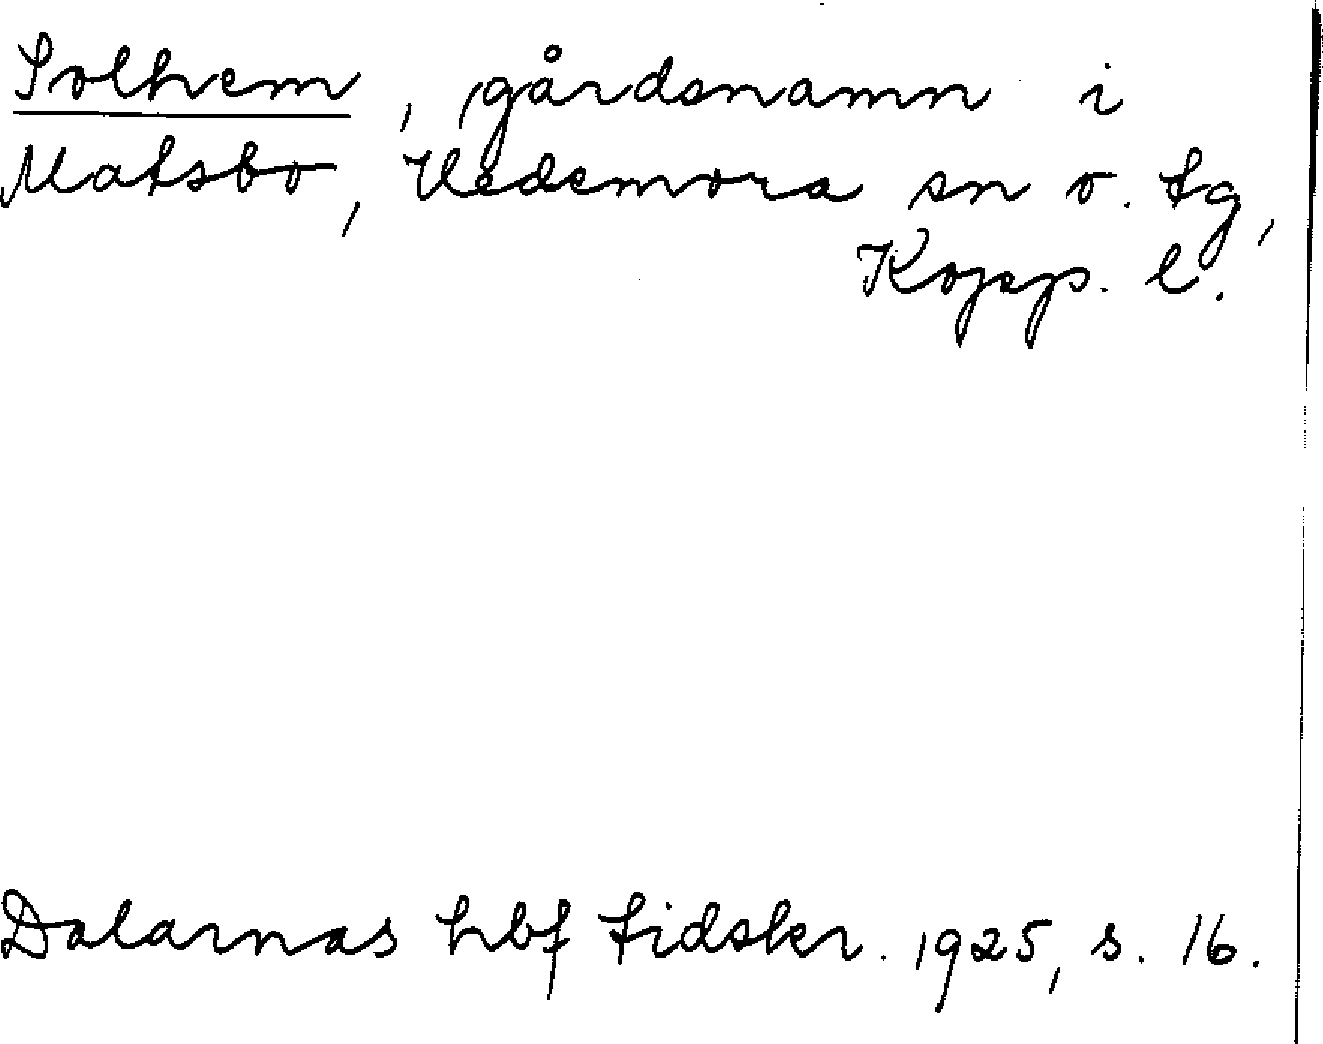 Solhem, gårdsnamn i
Matsbo, Hedemora sn o. tg,
Kopp. l.
Dalarnas hbf tidskr. 1925, s. 16.